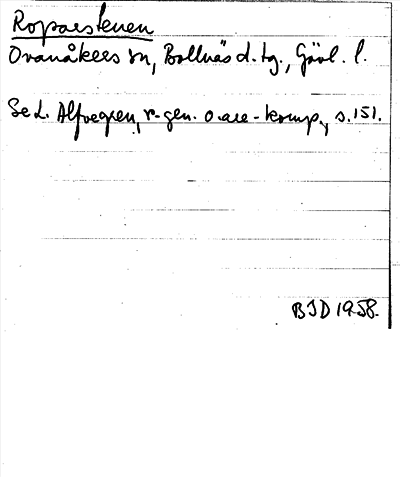 Roparstenen
Ovanåkers sn, Bollnäs d. tg., Gävl. l.
Se L. Alfvegren, r-gen. o. are-komp., s. 151.
BJD 1958.